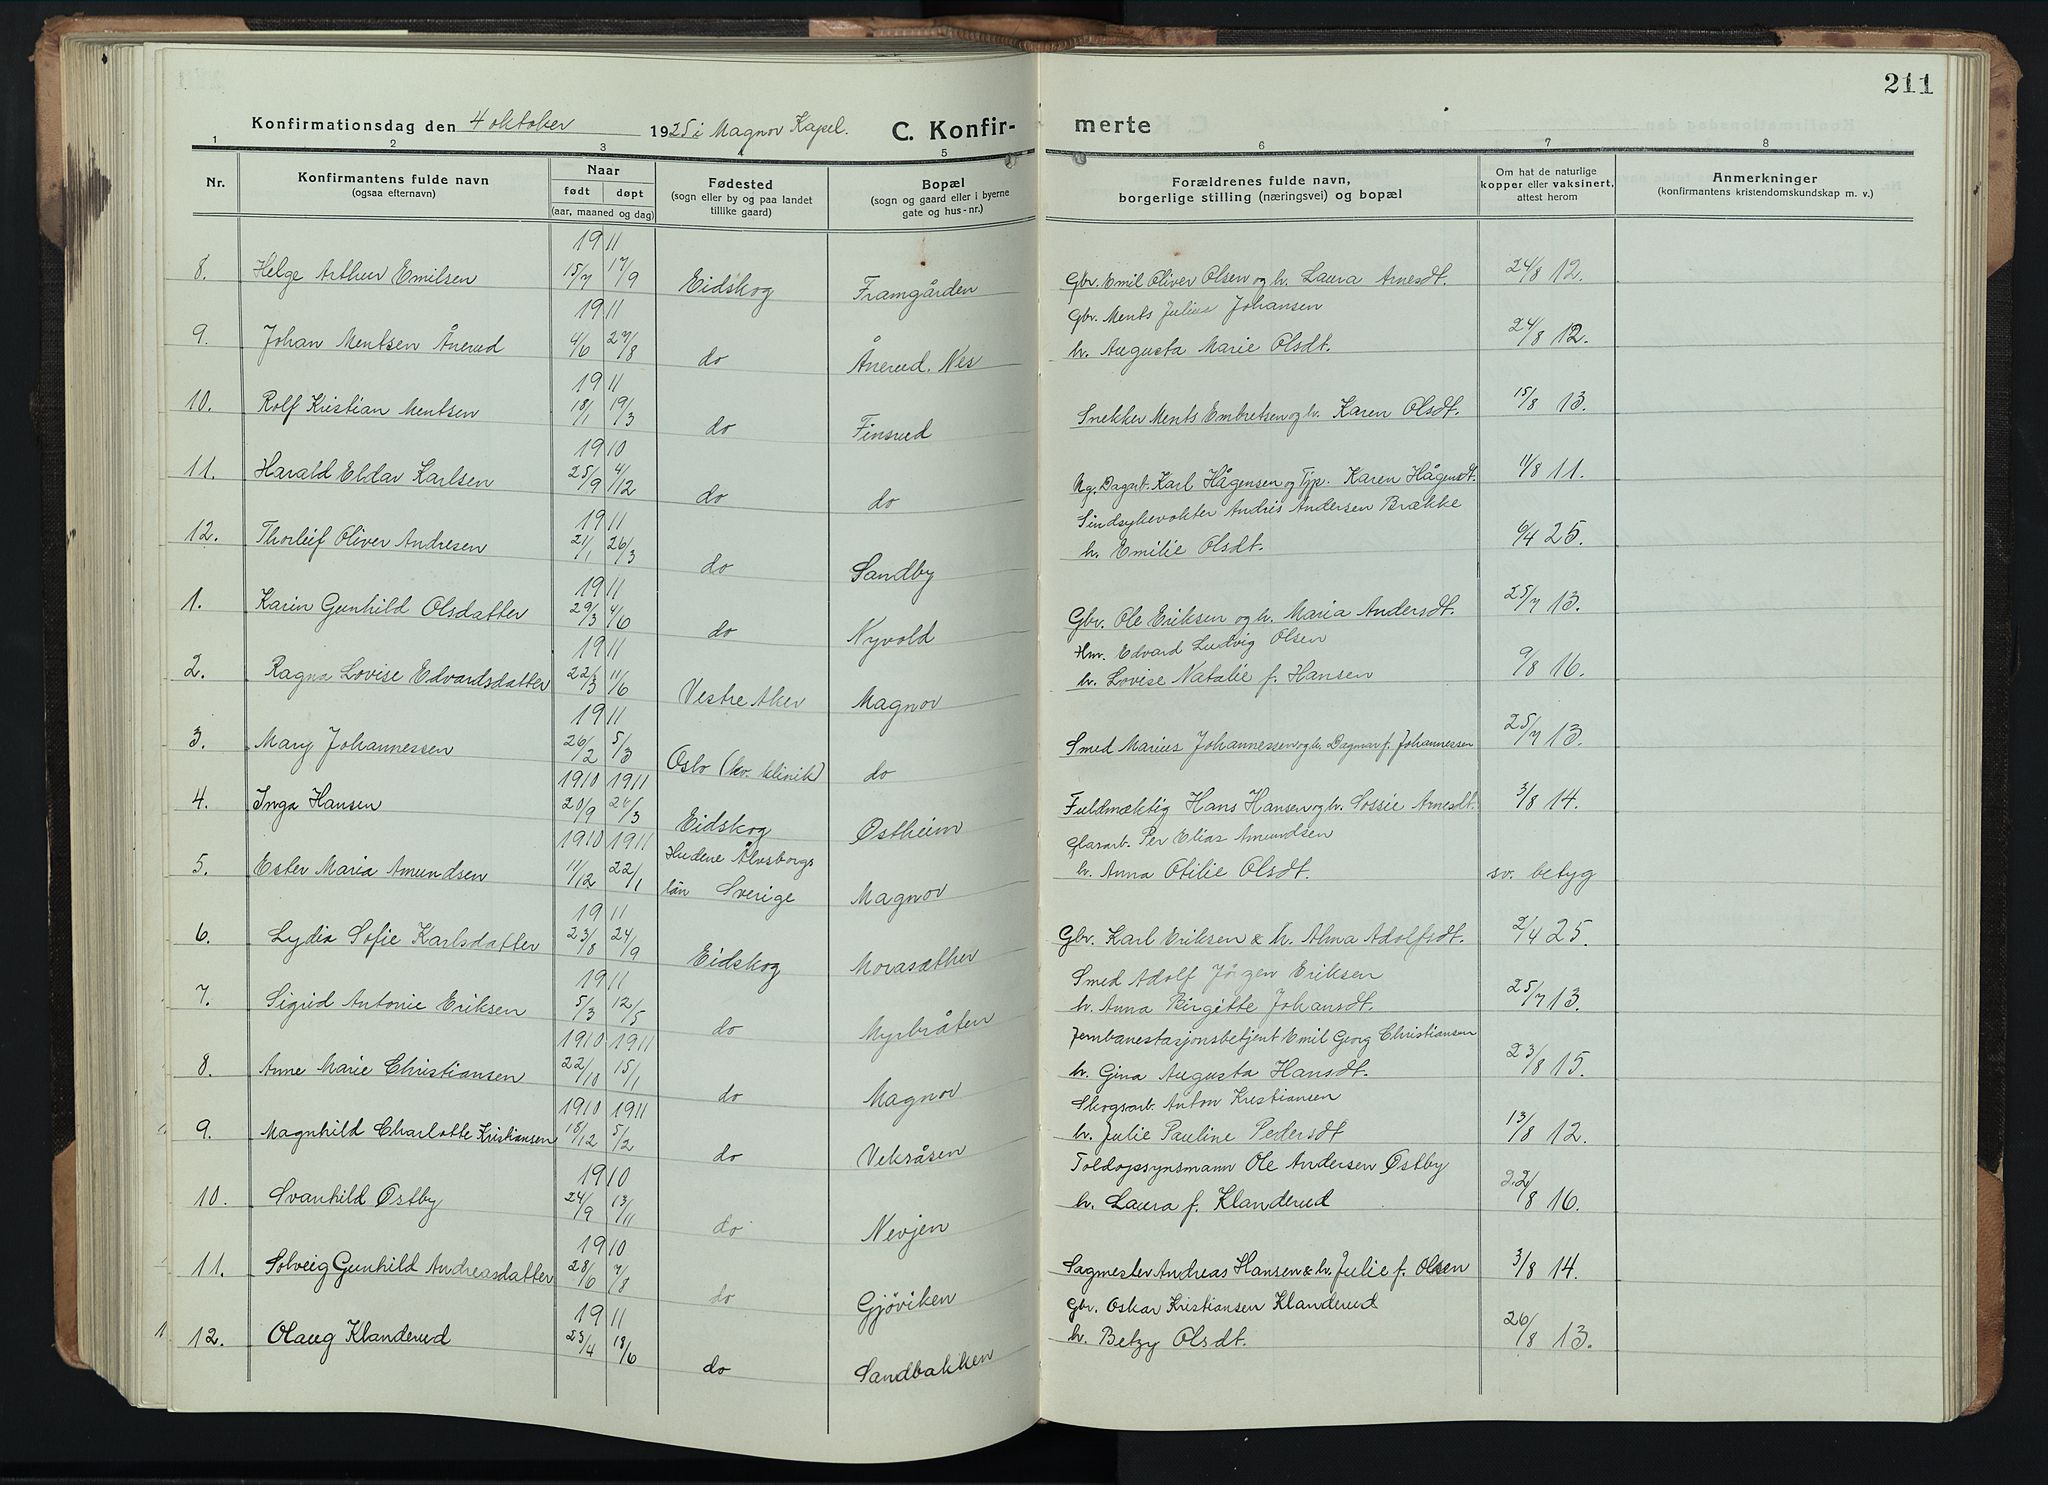 211
Konfirmationsdag den 4 oktober 1925 i Magnor Kapel. C. Konfir- merte
1 2 3 4 5 6 7 8
Nr. Konfirmantens fulde navn (ogsaa efternavn) Naar født døpt (aar, maaned og dag) Fødested (sogn eller by og paa landet tillike gaard) Bopæl (sogn og gaard eller i byerne gate og hus-nr.) Forældrenes fulde navn, borgerlige stilling (næringsvei) og bopæl Om hat de naturlige kopper eller vaksinert, attest herom Anmerkninger (konfirmantens kristendomskundskap m. v.)
1911
8. Helge Arthur Emilsen 15/7 17/9 Eidskog Framgården Gbr. Emil Oliver Olsen og h. Laura Arnesdt. 24/8 12.
1911 Gbr. Ments Julius Johansen
9. Johan Mentsen Ånerud 4/6 27/8 do Ånerud. Nes h. Augusta Marie Olsdt. 24/8 12.
1911
10. Rolf Kristian Mentsen 18/1 19/3 do Finsrud Snekker Ments Embretsen og h. Karen Olsdt. 15/8 13.
1910
11. Harald Eldar Karlsen 25/9 4/12 do do Ug. Dagarb. Karl Hågensen og Tjp. Karen Hågensdt. 11/8 11.
1911 Sindsykevokter Andris Andersen Brække
12. Thorleif Oliver Andresen 21/1 26/3 do Sandby h. Emilie Olsdt. 6/4 25.
1911
1. Karin Gunhild Olsdatter 29/3 4/6 do Nyvold Gbr. Ole Eriksen og h. Maria Andersdt. 25/7 13.
1911 Hmr. Edvard Ludvig Olsen
2. Ragna Lovise Edvardsdatter 22/3 11/6 Vestre Aker Magnor h. Lovise Natalie f. Hansen 9/8 16.
1911
3. Mary Johannessen 26/2 5/3 Oslo (kv. klinik) do Smed Marius Johannessen og h. Dagmar f. Johannessen 25/7 13.
1910 1911
4. Inga Hansen 20/9 /3 Eidskog Østheim Fuldmæktig Hans Hansen og h. Sossie Arnesdt. 3/8 14.
1910 1911 Hudene Älvsborgs Glasarb. Per Elias Amundsen
5. Ester Maria Amundsen 11/12 22/1 län Sverige Magnor h. Anna Otilie Olsdt. sv. betyg
1911
6. Lydia Sofie Karlsdatter 23/8 24/9 Eidskog Morasæther Gbr. Karl Eriksen & h. Alma Adolfsdt. 2/4 25.
1911 Smed Adolf Jörgen Eriksen
7. Sigrid Antonie Eriksen 5/3 12/5 do Myrbråten h. Anna Birgitte Johansdt. 25/7 13.
1910 1911 Jernbanestasjonsbetjent Emil Georg Christiansen
8. Anne Marie Christiansen 22/10 15/1 do Magnor h. Gina Augusta Hansdt. 23/8 15.
1910 1911 Skogsarb. Anton Kristiansen
9. Magnhild Charlotte Kristiansen 18/12 5/2 do Veksåsen h. Julie Pauline Pedersdt 13/8 12.
1910 Toldopsynsmann Ole Andersen Østby
10. Svanhild Østby 24/9 13/11 do Nevjen h. Laura f. Klanderud 22/8 16.
1910
11. Solveig Gunhild Andreasdatter 28/6 7/8 do Gjöviken Sagmester Andreas Hansen & h. Julie f. Olsen 3/8 14.
1911 Gbr. Oskar Kristiansen Klanderud
12. Olaug Klanderud 23/4 18/6 do Sandbakken h. Betzy Olsdt. 26/8 13.